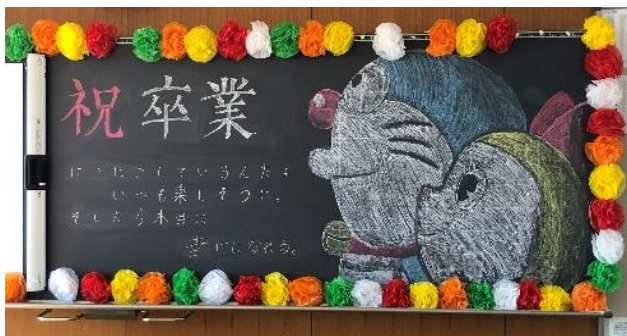 祝卒業
にこにこしているんだよ
いつも楽しそうに。
そしたら本当に
幸せになれる。